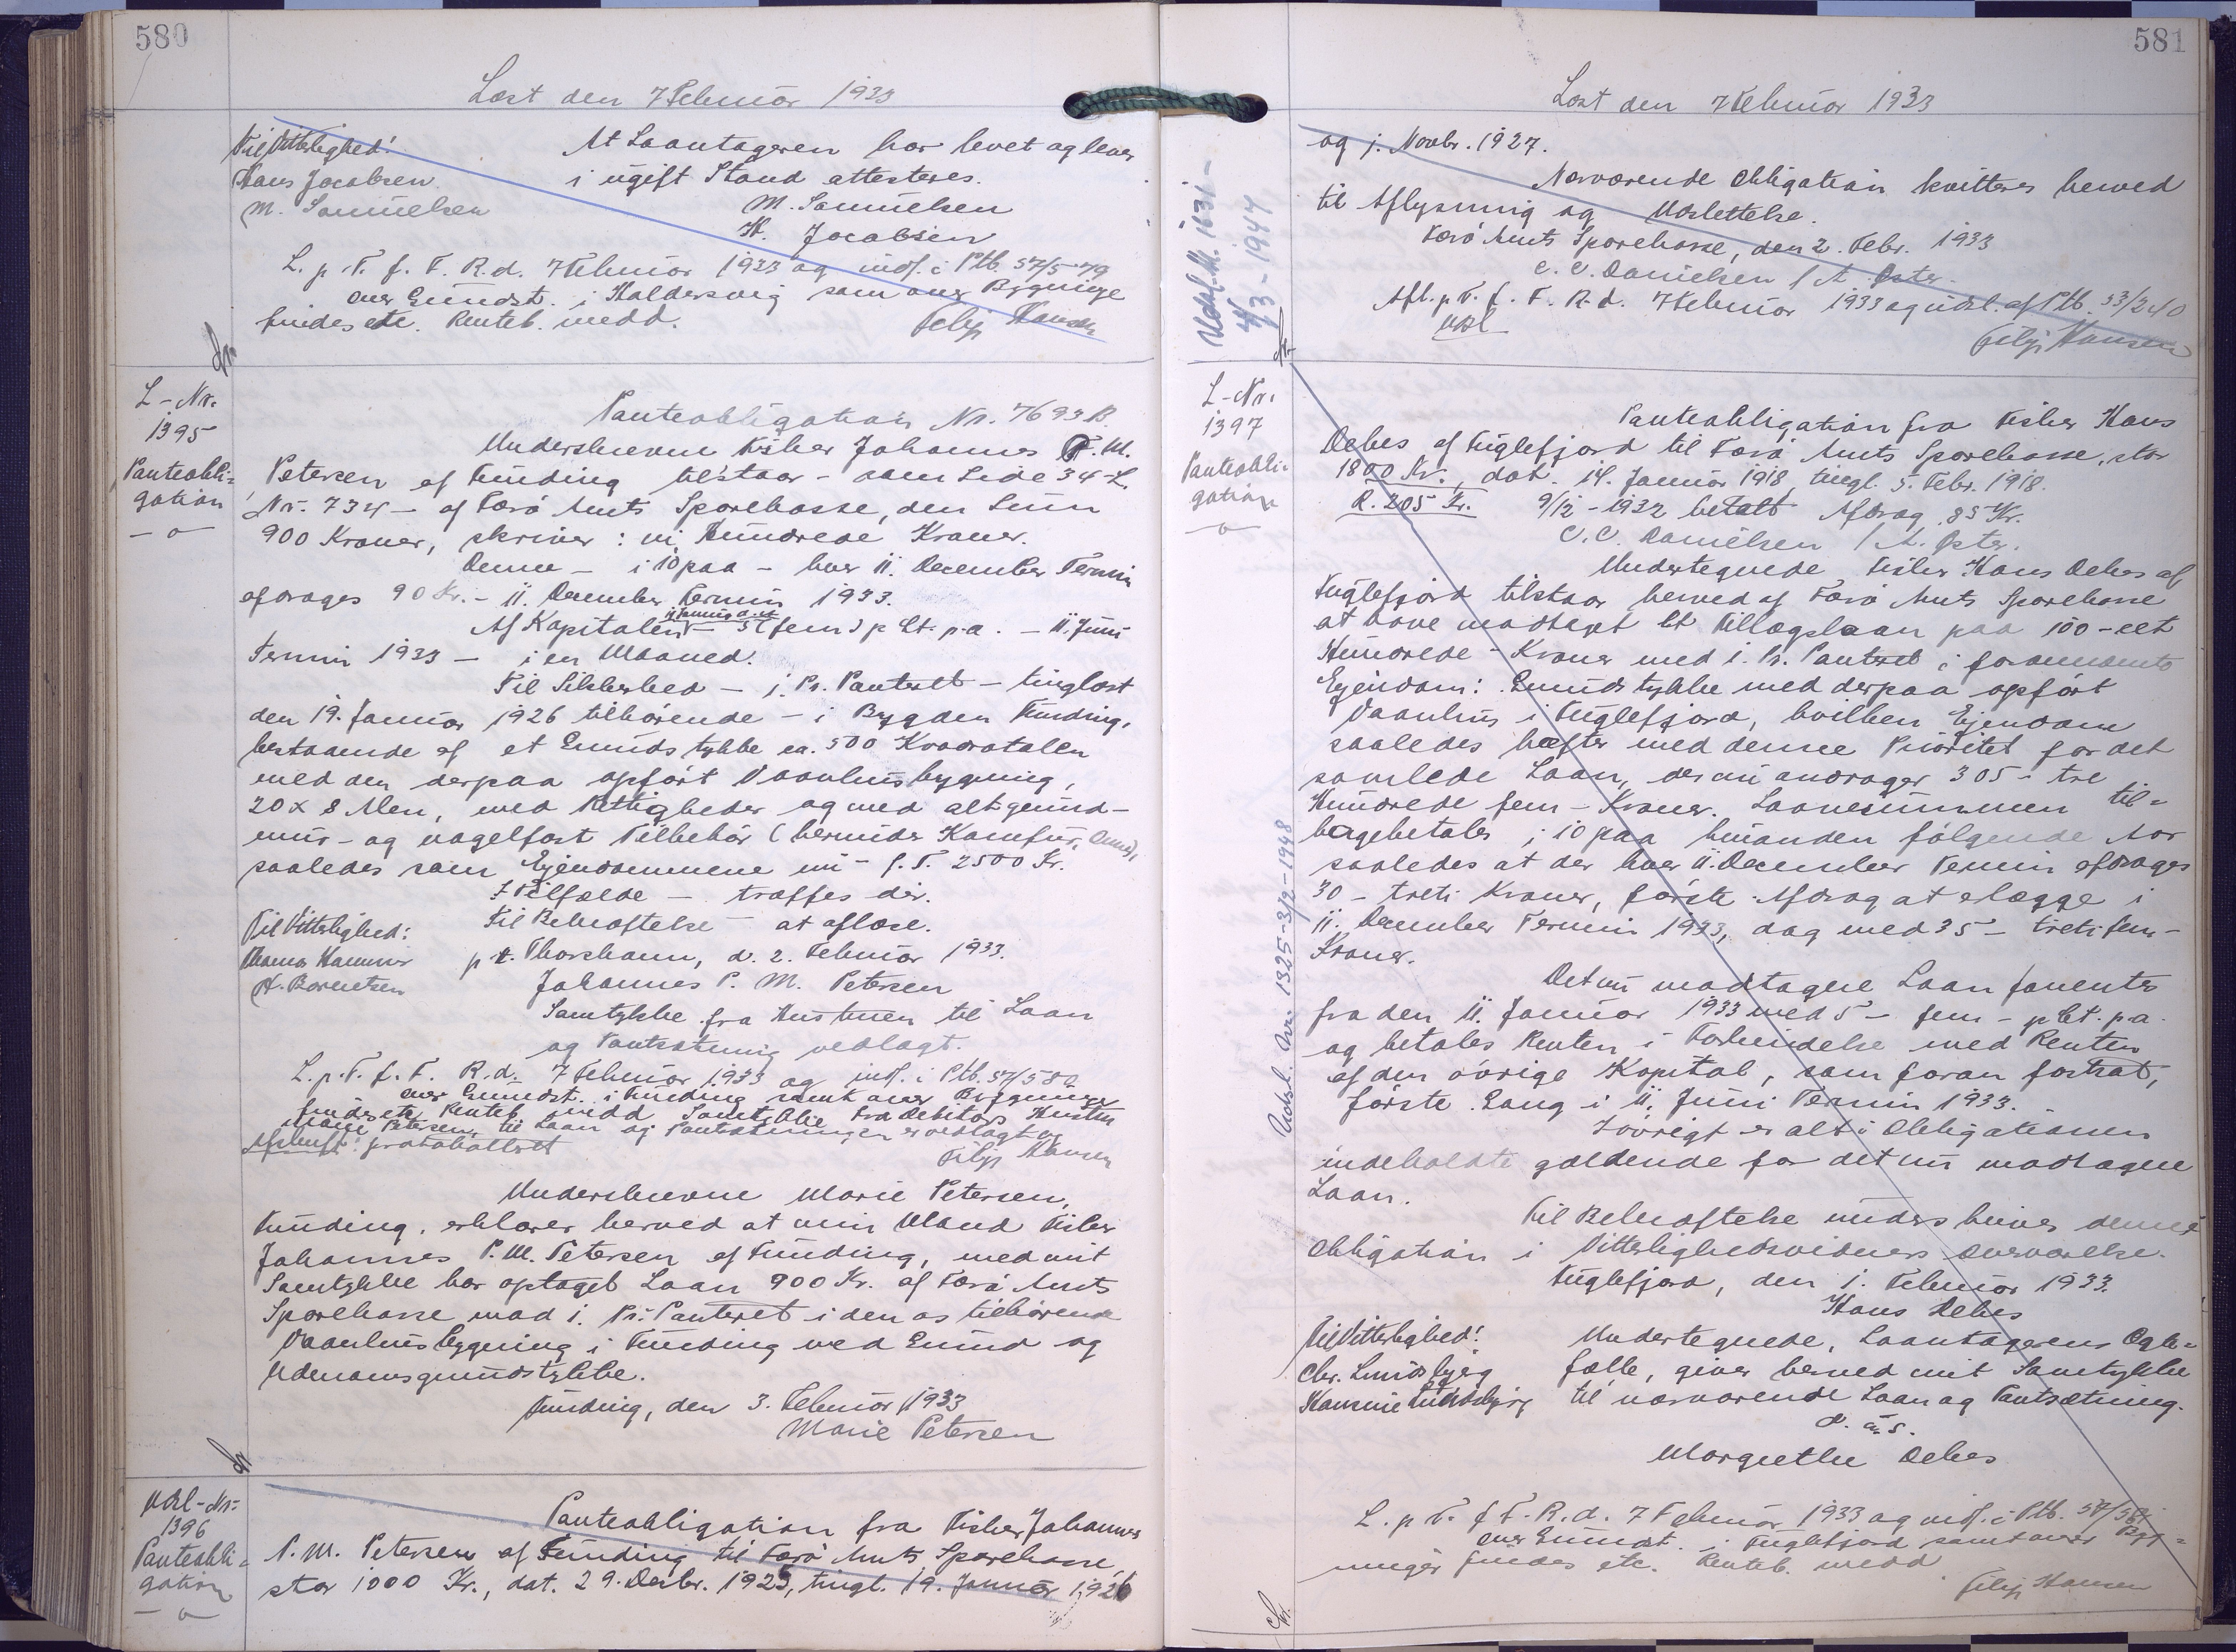 580
Læst den 7 Februar 1933
Til Vitterlighed!
Hans Jacobsen
M. Samuelsen
At Laantageren har levet og lever
i ugift Stand attesteres.
M. Samuelsen
H. Jacobsen
L. p. T. f. F. R. d. 7 Februar 1933 og indf. i Ptb. 57/579
over Grundst. i Haldersvig samt over Bygninge
findes ete. Renteb. medd.
Filip Hansen
L-Nr.
1395
Panteobli=
gation
Panteobligation Nr. 7693 B.
Underskrevne Fisker Johannes P. M.
Petersen af Funding tilstaar - som Side 34 - L.
Nr. 734 - af Færø Amts Sparekasse, den Sum
900 Kroner, skriver: ni Hundrede Kroner.
Denne - i 10 paa - hver 11. December Termin
afdrages 90 Kr. - 11. December Termin 1933.
Af Kapitalen - 5 (fem) p Ct. p.a. - 11. Juni
Termin 1933 - i en Maaned.
Til Sikkerhed - 1. Pr. Panteret - tinglæst
den 19. Januar 1926 tilhørende - i Bygden Funding,
bestaaende af et Grundstykke ca. 500 Kvadratalen
med den derpaa opført Vaanhusbygning,
20 x 8 Alen, med Rettigheder og med alt grund-
mur- og nagelfast Tilbehør (herunder Komfur,
saaledes som Ejendommene nu - f. T. 2500 Kr.
I Tilfælde - træffes dér.
Til Bekræftelse - at aflæse.
Til Vitterlighed:
H. Berentsen
p.t. Thorshavn, d. 2. Februar 1933.
Johannes P. M. Petersen
Samtykke fra Hustruen til Laan
og Pantsætning vedlagt.
L. p. T. f. F. R. d. 7 Februar 1933 og indf. i Ptb. 57/580
over Grundst. i Funding samt over Bygninger
findes ete. Renteb. medd. Samtykke fra Debitors Hustru
Marie Petersen, til Laan og Pantsætningen er vedlagt og
Afskrift protokolleret
Filip Hansen
Underskrevne Marie Petersen,
Funding, erklærer herved at min Mand Fisker
Johannes P. M. Petersen af Funding, med mit
Samtykke har optaget Laan 900 Kr. af Færø Amts
Sparekasse mod 1. Pr. Panteret i den os tilhørende
Vaanhusbygning i Funding med Grund og
Udenomsgrundstykke.
Funding, den 3. Februar 1933
Marie Petersen
Udsl-Nr.
1396
Panteobli=
gation
Panteobligation fra Fisker Johannes
P. M. Petersen af Funding til Færø Amts Sparekasse,
stor 1000 Kr., dat. 29. Decbr. 1925, tingl. 19. Januar 1926
581
Læst den 7 Februar 1933
og 1. Novbr. 1927.
Nærværende Obligation kvitteres herved
til Aflysning og Udslettelse.
Færø Amts Sparekasse, den 2. Febr. 1933
C. C. Danielsen / A. Øster.
Afl. p. T. f. F. R. d. 7 Februar 1933 og udsl. af Ptb. 53/240
Udsl
Filip Hansen
Udsl. N. 1631-
4/3-1944
L-Nr.
1397
Panteobli=
gation
Panteobligation fra Fisker Hans
Debes af Fuglefjord til Færø Amts Sparekasse, stor
1800 Kr., dat. 14. Januar 1918, tingl. 5. Febr. 1918.
R. 205 Kr. 9/12-1932 betalt Afdrag 85 Kr.
C. C. Danielsen / A. Øster.
Undertegnede Fisker Hans Debes af
Fuglefjord tilstaar herved af Færø Amts Sparekasse
at have modtaget Et Tillægslaan paa 100 - eet
Hundrede - Kroner med 1. Pr. Panteret i forannævnte
Ejendom: Grundstykke med derpaa opført
Vaanhus i Fuglefjord, hvilken Ejendom
saaledes hæfter med denne Prioritet for det
samlede Laan, der nu andrager 305 - tre
Hundrede fem - Kroner. Laanesummen til=
bagebetales i 10 paa hinanden følgende Aar
saaledes at der hver 11. December Termin afdrages
30 - treti Kroner, første Afdrag at erlægge i
11. December Termin 1933, dog med 35 - treti fem -
Kroner.
Det nu modtagne Laan forrentes
fra den 11. Januar 1933 med 5 - fem - pCt. p.a.
og betales Renten i Forbindelse med Renten
af den øvrige Kapital, som foran fastsat,
første Gang i 11. Juni Termin 1933.
Iøvrigt er alt i Obligationen
indeholdte gældende for det nu modtagne
Laan.
Til Bekræftelse underskrives denne
Obligation i Vitterlighedsvidners Overværelse.
Fuglefjord, den 1. Februar 1933.
Hans Debes
Til Vitterlighed!
Chr. Lundsbjerg
Hansine Lundsbjerg
Undertegnede, Laantagerens Ægte=
fælle, giver herved mit Samtykke
til nærværende Laan og Pantsætning.
D. u. s.
Margrethe Debes
L. p. T. f. F. R. d. 7 Februar 1933 og indf. i Ptb. 57/581
over Grundst. i Fuglefjord samt over Byg=
ninger findes ete. Renteb. medd.
Filip Hansen
Udsl. Nr. 1325-3/2-1948